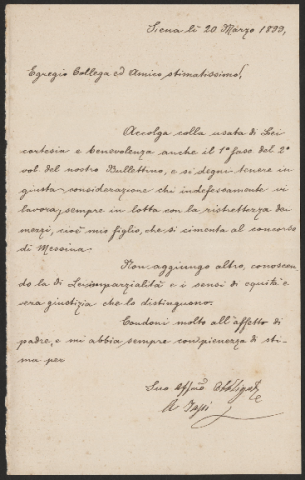 Siena lì 20 Marzo 1899,
Egregio Collega ed Amico stimatissimo!
Accolga colla usata di Lei
cortesia e benevolenza anche il 1º fasc del 2º
vol del nostro Bullettino, e si degni tenere in
giusta considerazione chi indefessamente vi
lavora, sempre in lotta con la ristrettezza dei
mezzi, cioè mio figlio, che si cimenta al concorso
di Messina.
Non aggiungo altro, conoscen
do la di Lei imparzialità e i sensi di equità e
vera giustizia che lo distinguono.
Condoni molto all'affetto di
padre, e mi abbia sempre con pienezza di sti-
ma per
Suo Affmo
A Tassi